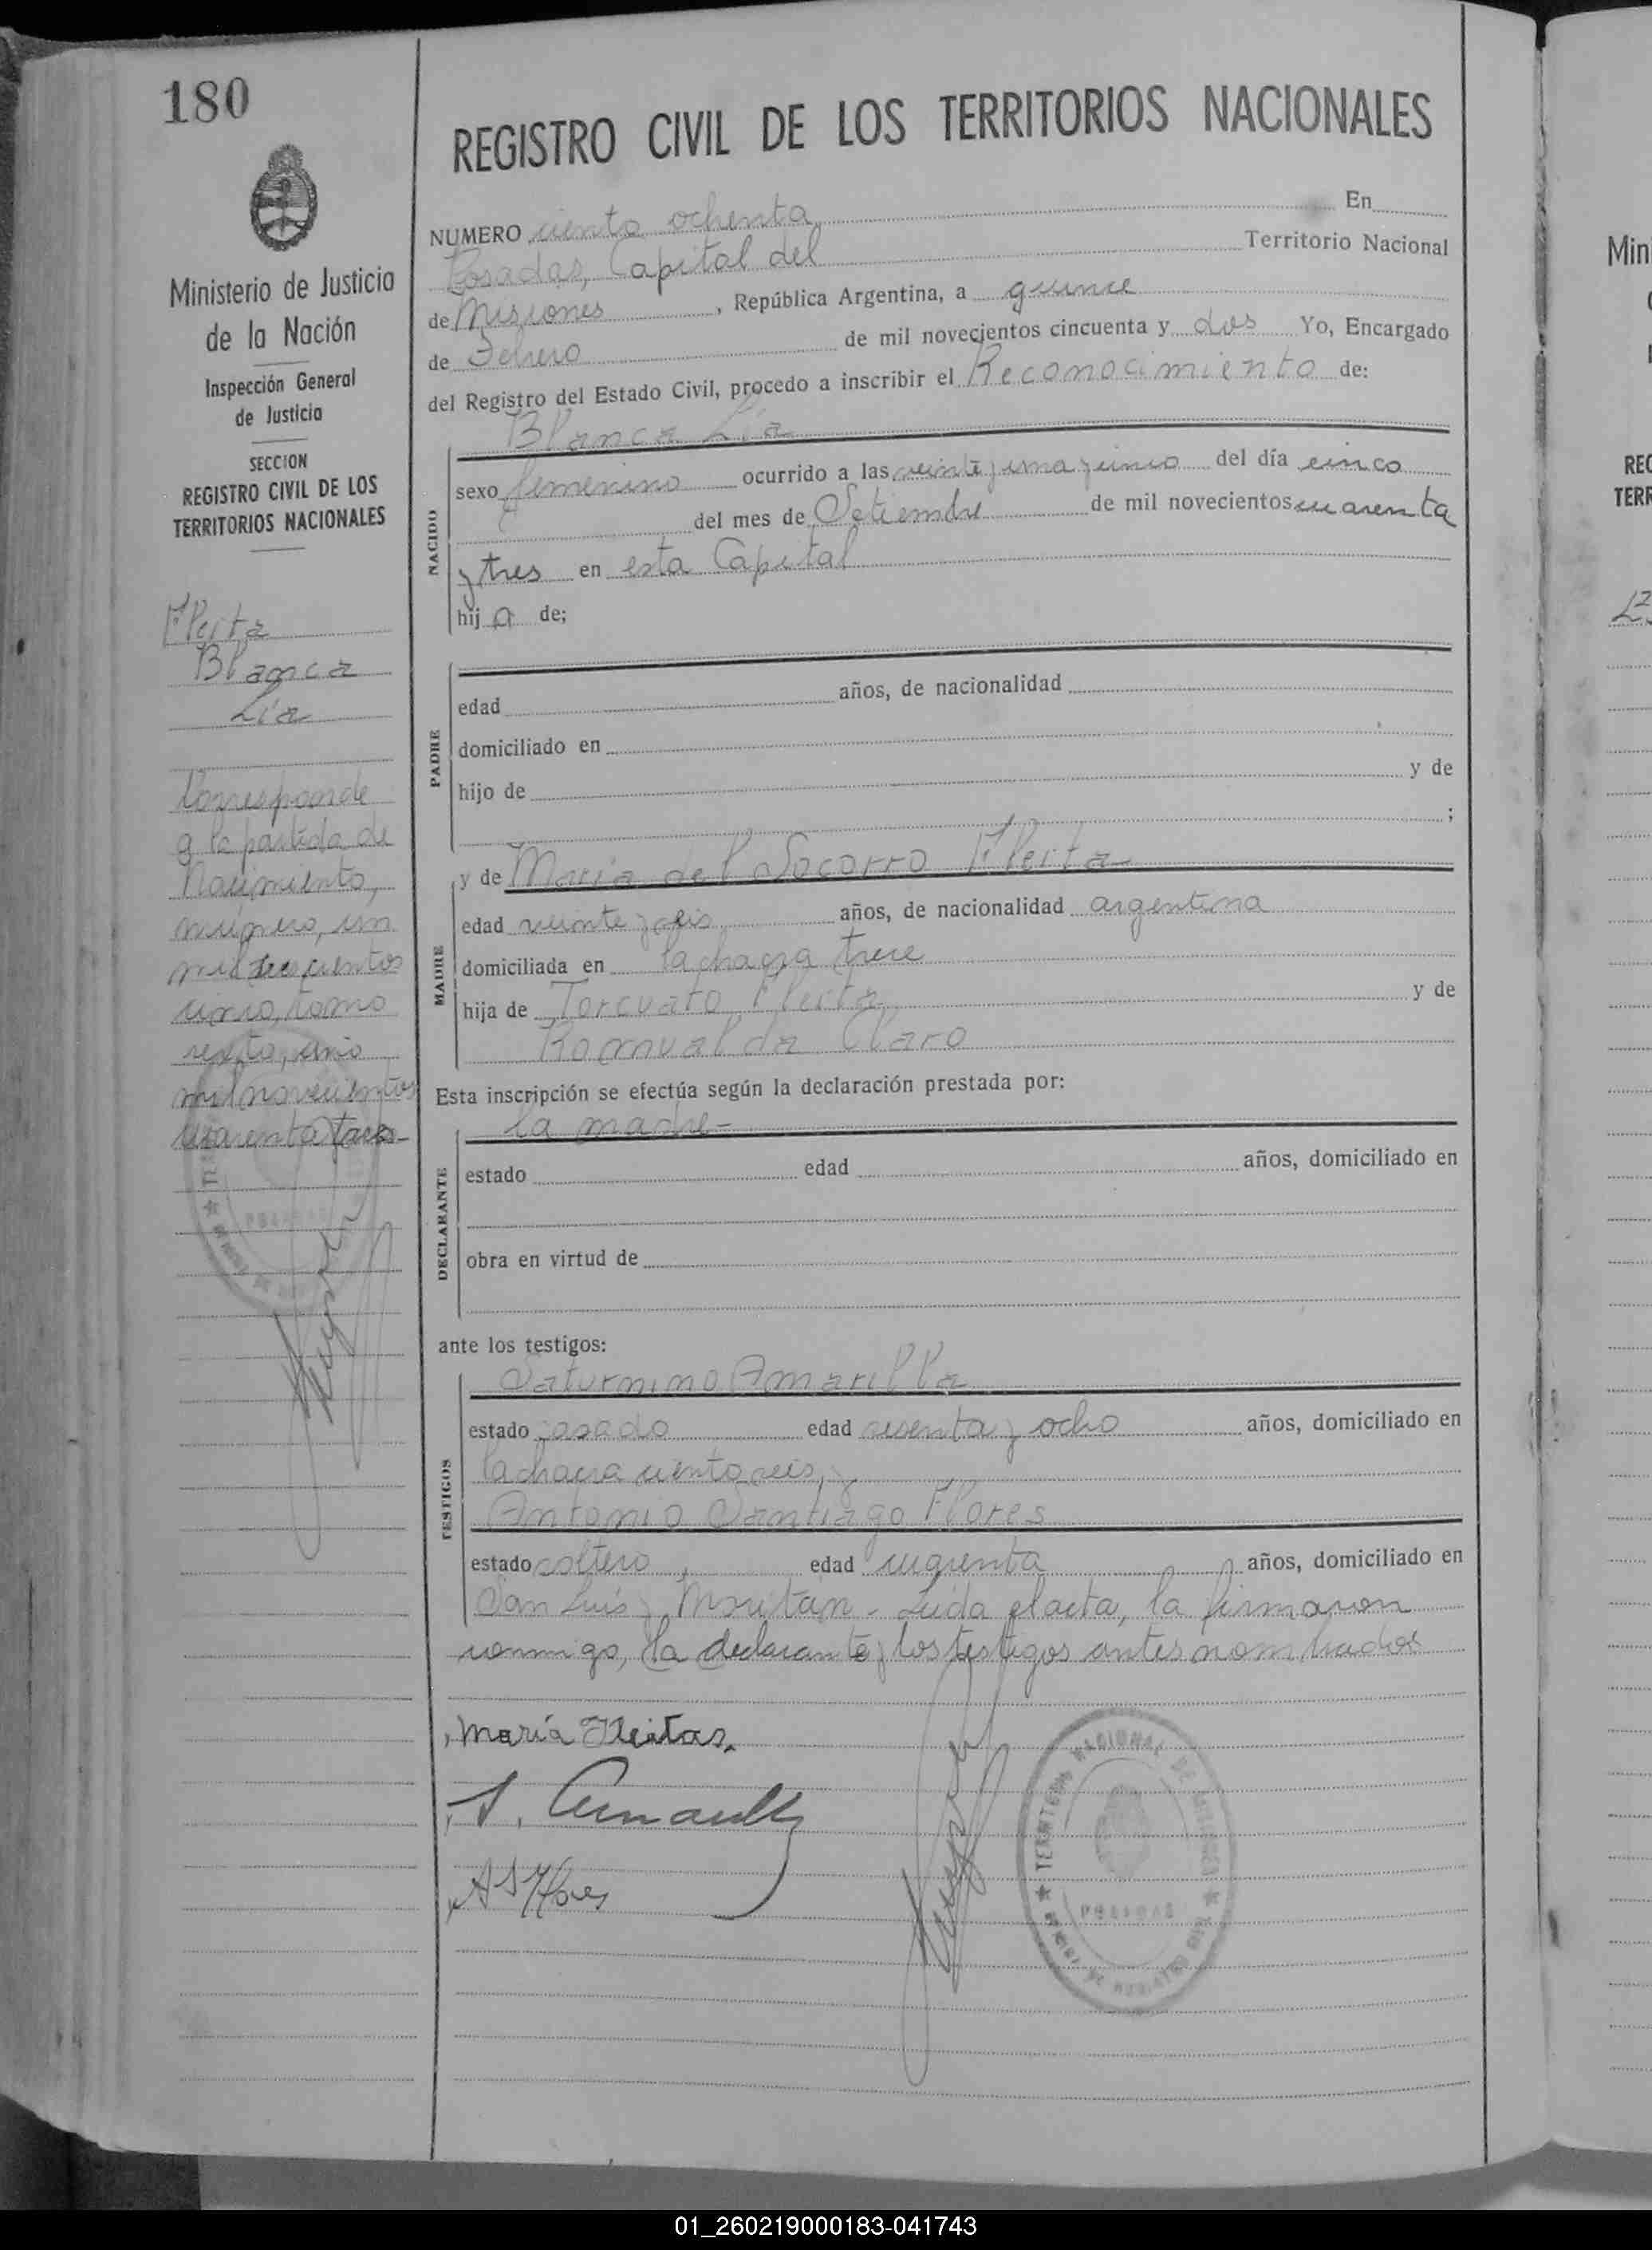 180
Ministerio de Justicia
de la Nación
Inspección General
de Justicia
SECCION
REGISTRO CIVIL DE LOS
TERRITORIOS NACIONALES
Fleita
Blanca
Lía
Corresponde
a la partida de
Nacimiento,
número, un
mil trescientos
cinco, tomo
sexto, año
mil novecientos
cuarenta tres-
REGISTRO CIVIL DE LOS TERRITORIOS NACIONALES
NUMERO ciento ochenta En
Posadas, Capital del Territorio Nacional
de Misiones, República Argentina, a quince
de Febrero de mil novecientos cincuenta y dos Yo, Encargado
del Registro del Estado Civil, procedo a inscribir el Reconocimiento de:
Blanca Lía
NACIDO
sexo femenino ocurrido a las veinte y una y cinco del día cinco
del mes de Setiembre de mil novecientos cuarenta
y tres en esta Capital
hija de;
PADRE
edad años, de nacionalidad
domiciliado en
hijo de y de
;
y de María del Socorro Fleita
MADRE
edad veinte y seis años, de nacionalidad argentina
domiciliada en la chacra trece
hija de Torcuato Fleita y de
Romualda Claro
Esta inscripción se efectúa según la declaración prestada por:
la madre-
DECLARANTE
estado edad años, domiciliado en
obra en virtud de
ante los testigos:
Saturnino Amarilla
TESTIGOS
estado casado edad sesenta y ocho años, domiciliado en
la chacra ciento seis, y
Antonio Santiago Flores
estado soltero, edad cuarenta años, domiciliado en
San Luis y Moritán - Leída el acta, la firmaron
conmigo, la declarante y los testigos antes nombrados
María Fleitas.
A S Flores
TERRITORIO NACIONAL DE MISIONES
POSADAS
01_260219000183-041743